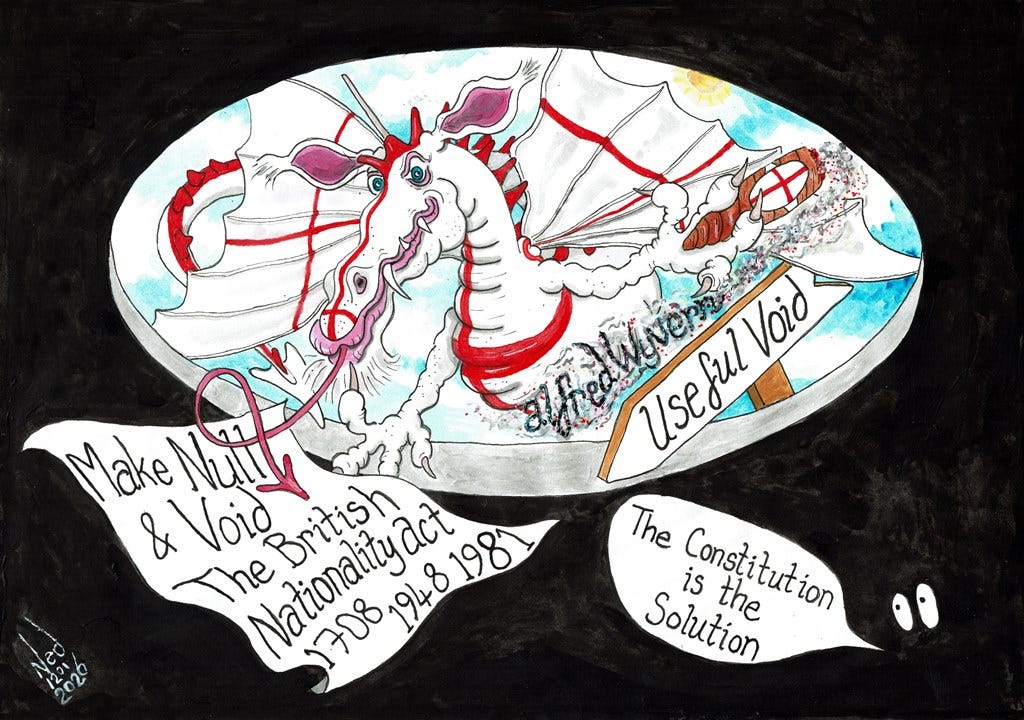 alfredWyvern
Useful Void
Make Null
& Void
The British
Nationality act
1708 1948 1981
The Constitution
is the
Solution
Neo
1201
2026